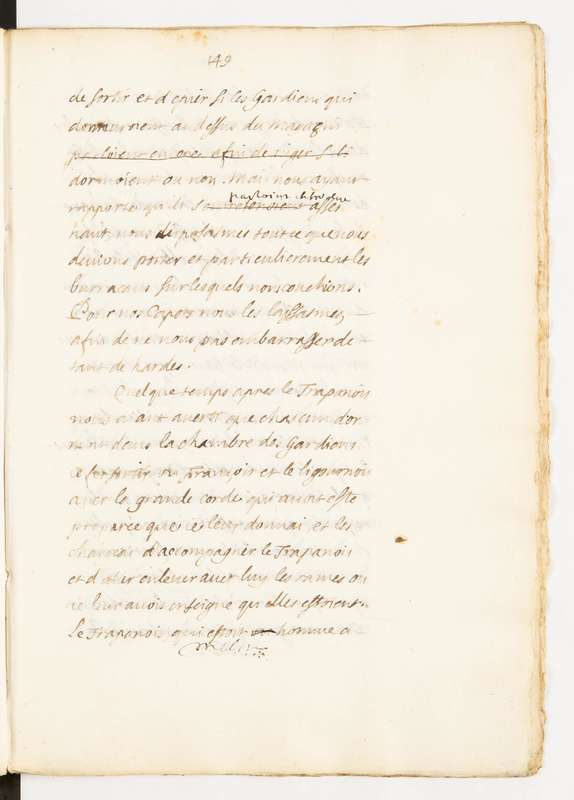 149
de sortir et d epier si les Gardiens qui
demeuroient au dessus du
parloient encores afin de juger s ils
dormoient ou non. Mais nous ayant
rapporté qu ils parloient asses
haut, nous disposasmes tout ce que nous
devions porter et particulierement les
burracans sur lesquels nous couchions.
Pour nos Capots nous les laissasmes
afin de ne nous pas embarrasser de
tant de hardes.
Quelque temps apres le Trapanois
nous aiant averti que chascun dor
moit dans la chambre des Gardiens
ie fis sortir François et le ligournois
avec la grande corde qui avoit esté
preparée que ie leur donnai, et les
chargeai d'accompagner le Trapanois
et d aller enlever avec luy les rames ou
ie leur avois enseigné qu elles estoient.
Le Trapanois qui estoit homme a